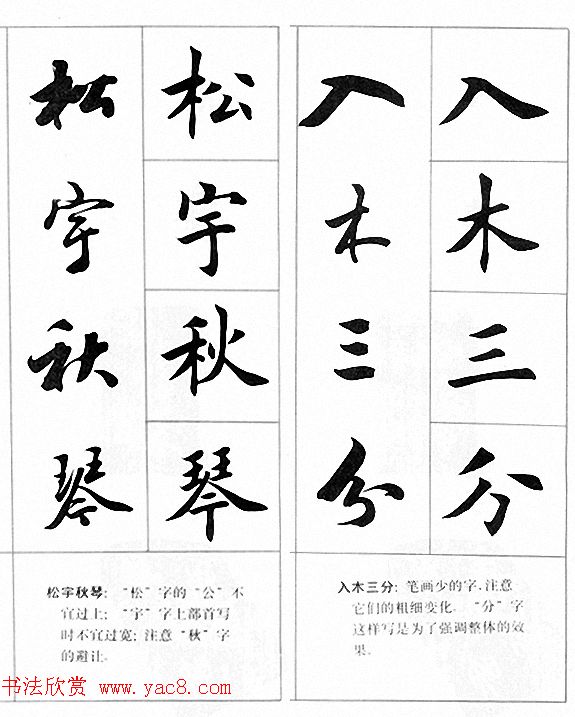 入木三分
入木三分
松宇秋琴
松宇秋琴
入木三分：笔画少的字，注意
它们的粗细变化。“分”字
这样写是为了强调整体的效
果。
松宇秋琴：“松”字的“公”不
宜过上；“宇”字上部首写
时不宜过宽；注意“秋”字
的避让。
书法欣赏 www.yac8.com